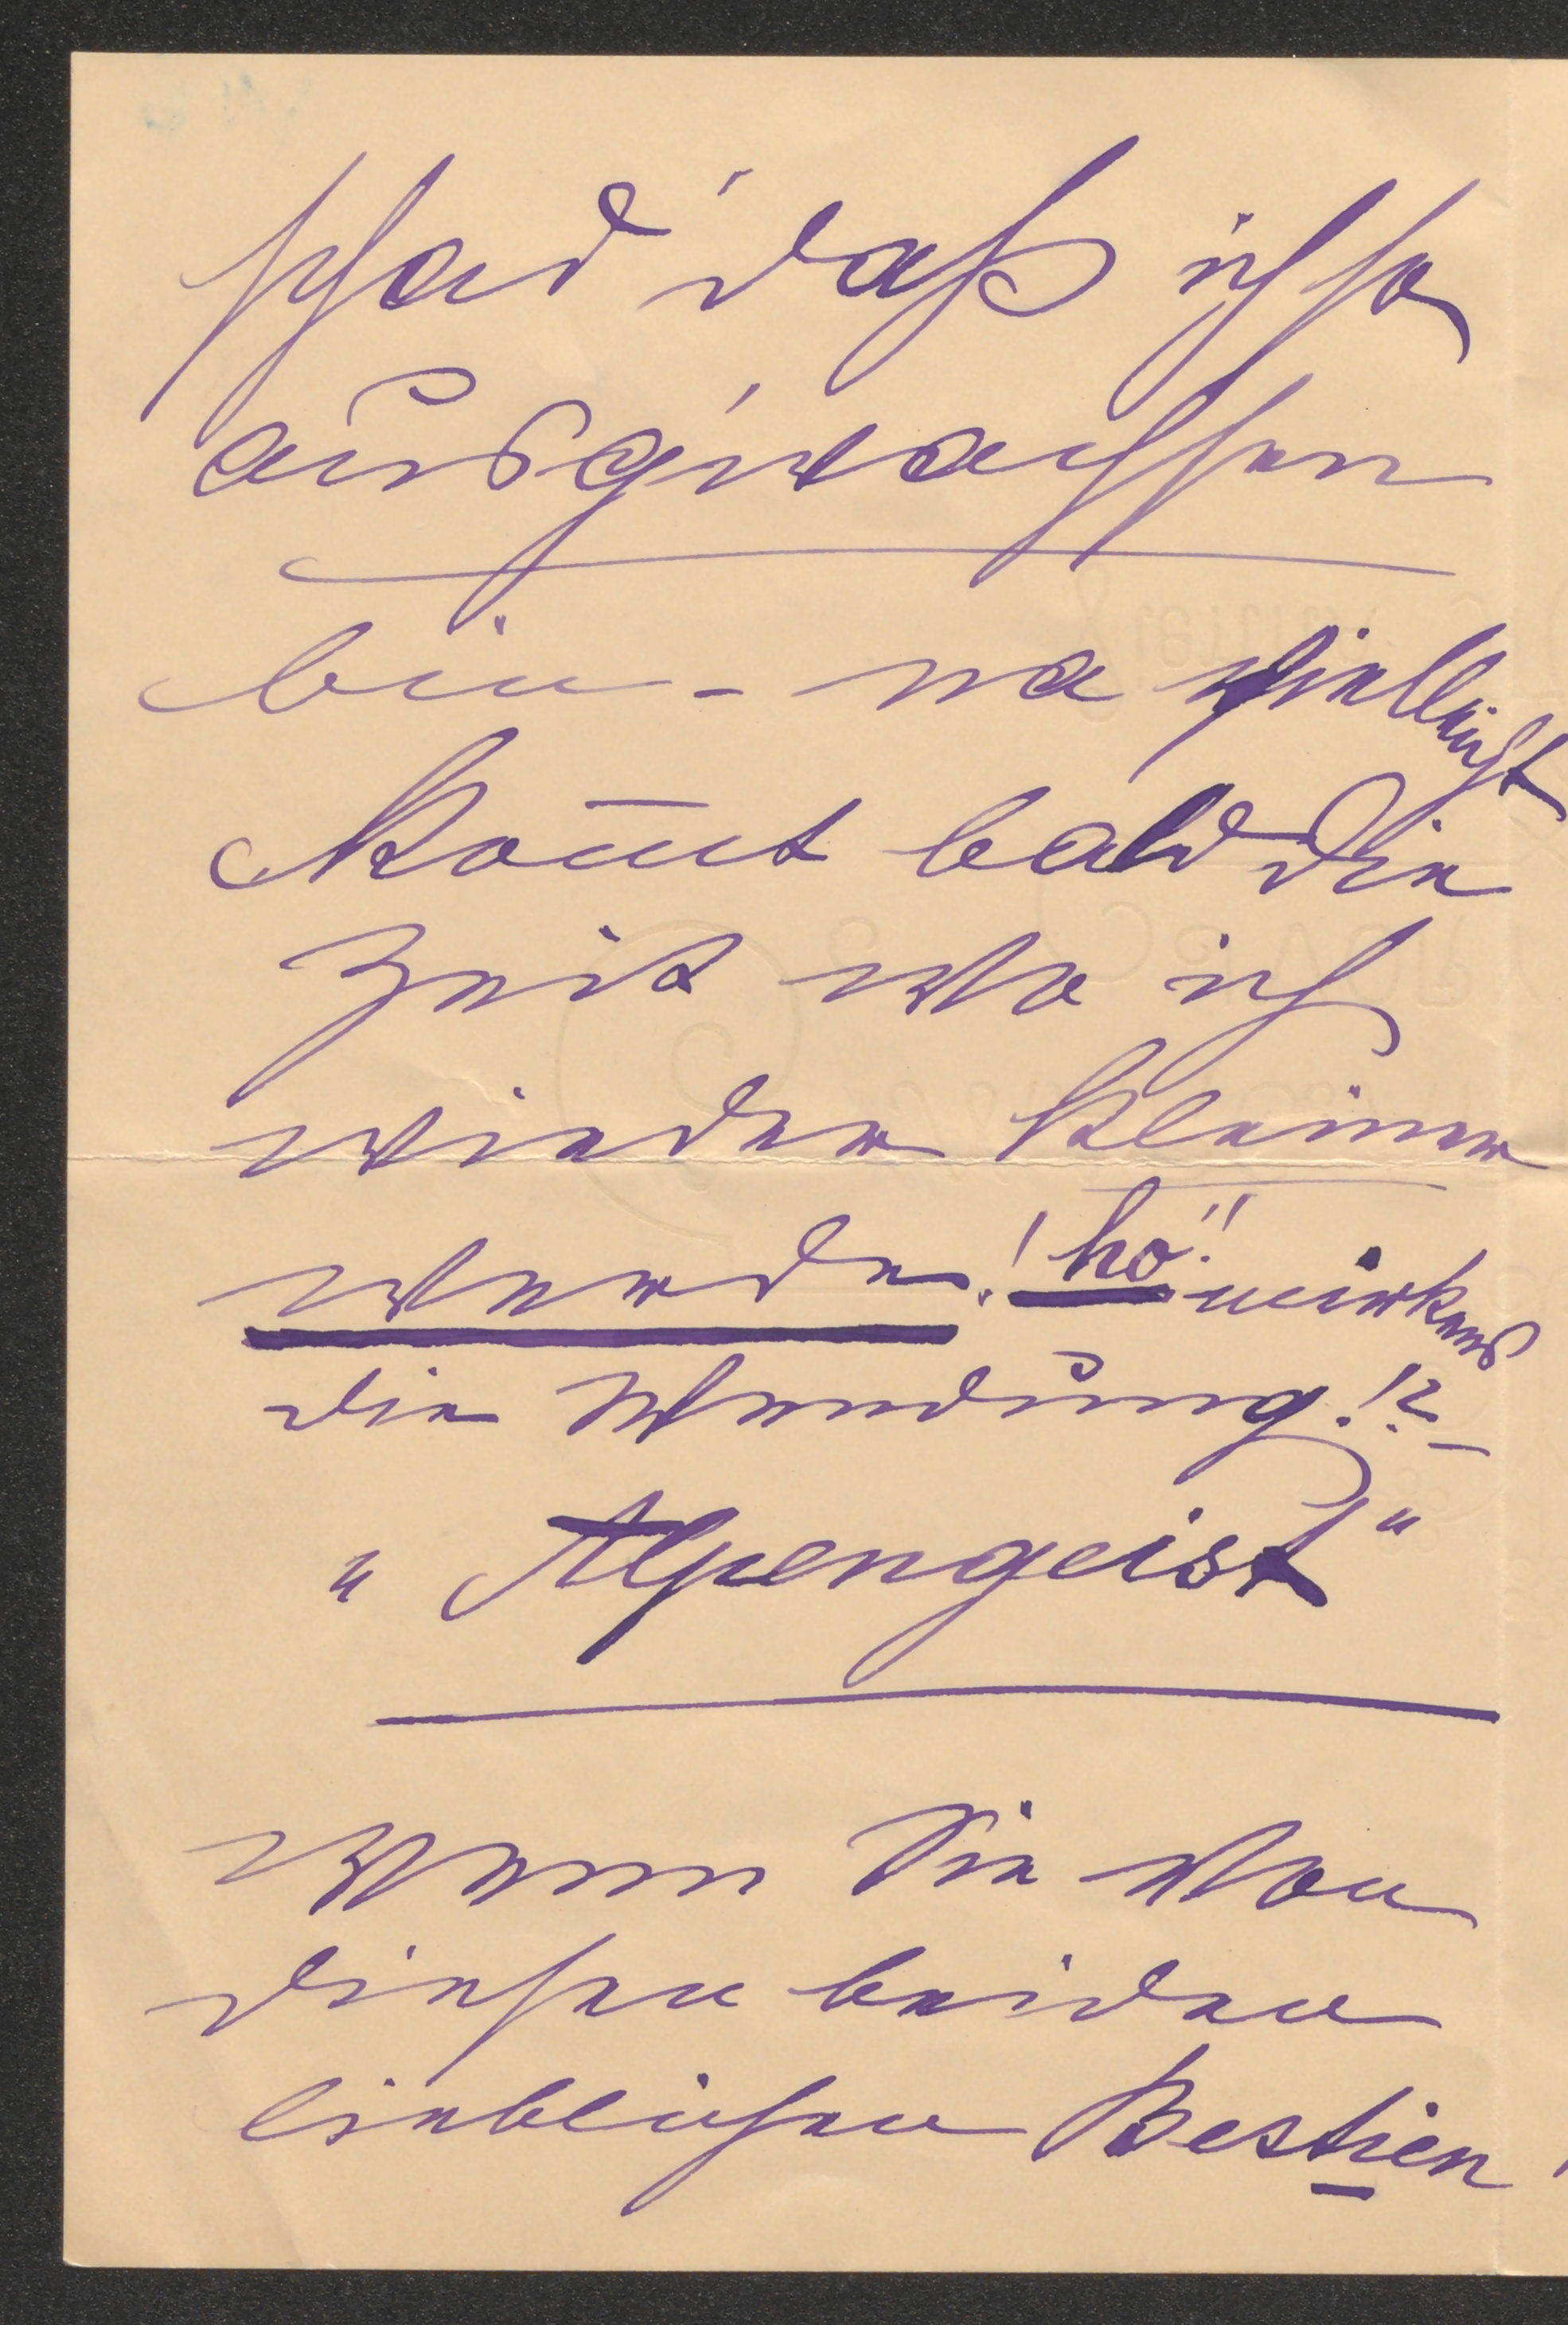 schad' daß ich so
ausg'wachsen
bin - na vielleicht
kom̄t bald die
Zeit wo ich
wieder kleiner
werde! hö!! merkens
die Wendung!? -
„Alpengeist“
Wenn Sie von
diesen beiden
lieblichen Bestien